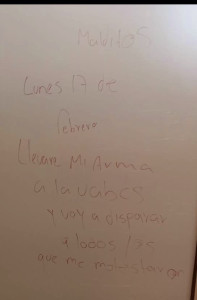 Malditos
Lunes 17 de
febrero
Llevare Mi Arma
a la uabcs
y voy a disparar
a todos los
que me molestaron